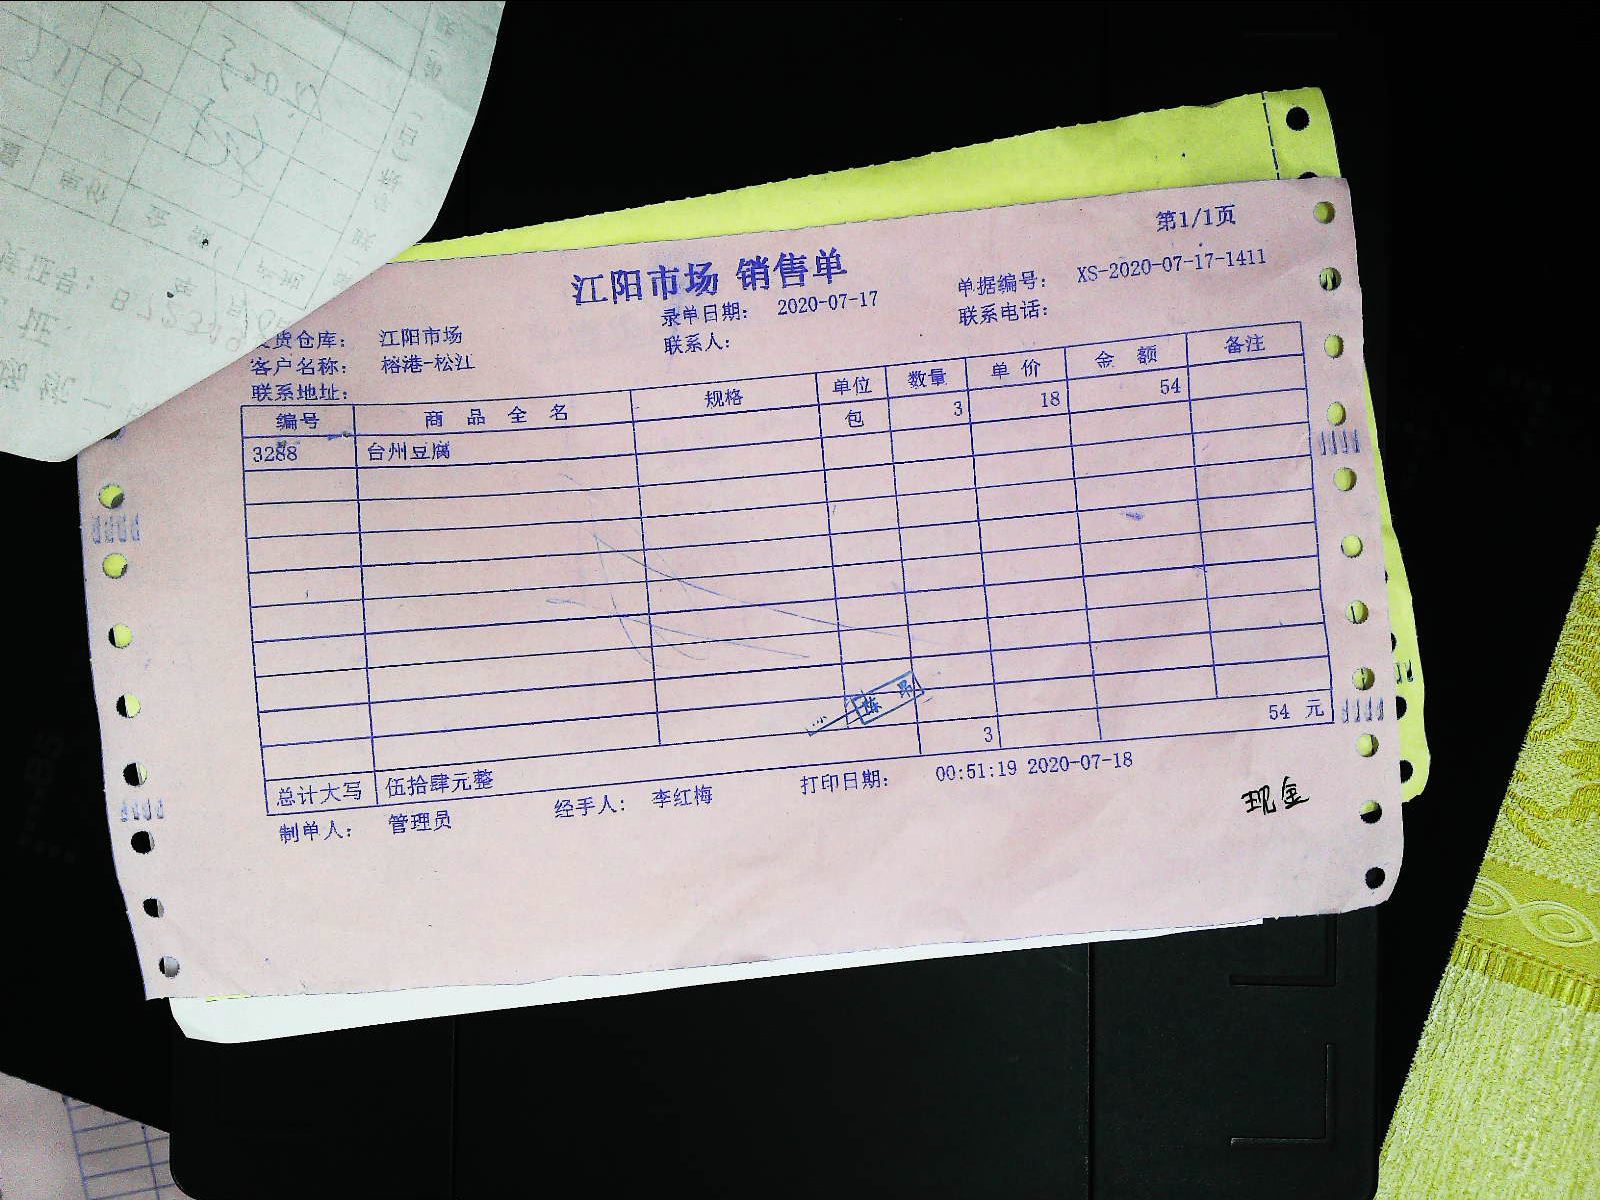 第1/1页
江阳市场 销售单
货仓库： 江阳市场 录单日期： 2020-07-17 单据编号： XS-2020-07-17-1411
客户名称： 榕港-松江 联系人： 联系电话：
联系地址：
编号 商 品 全 名 规格 单位 数量 单 价 金 额 备注
3288 台州豆腐 包 3 18 54
3 54 元
总计大写 伍拾肆元整
制单人： 管理员 经手人： 李红梅 打印日期： 00:51:19 2020-07-18
现金